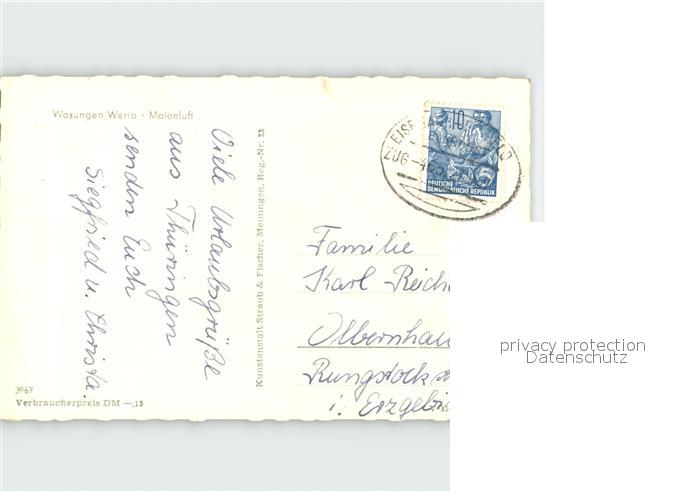 Wasungen/Werra - Maienluft
Viele Urlaubsgrüße
aus Thüringen
senden Euch
Siegfried u. Christa.
3967
Verbraucherpreis DM —,15
Kunstanstalt Straub & Fischer, Meiningen, Reg.-Nr. 23
10
DEUTSCHE
DEMOKRATISCHE REPUBLIK
ZUG
Familie
Karl
Olbernhau
i. Erzgebi
privacy protection
Datenschutz